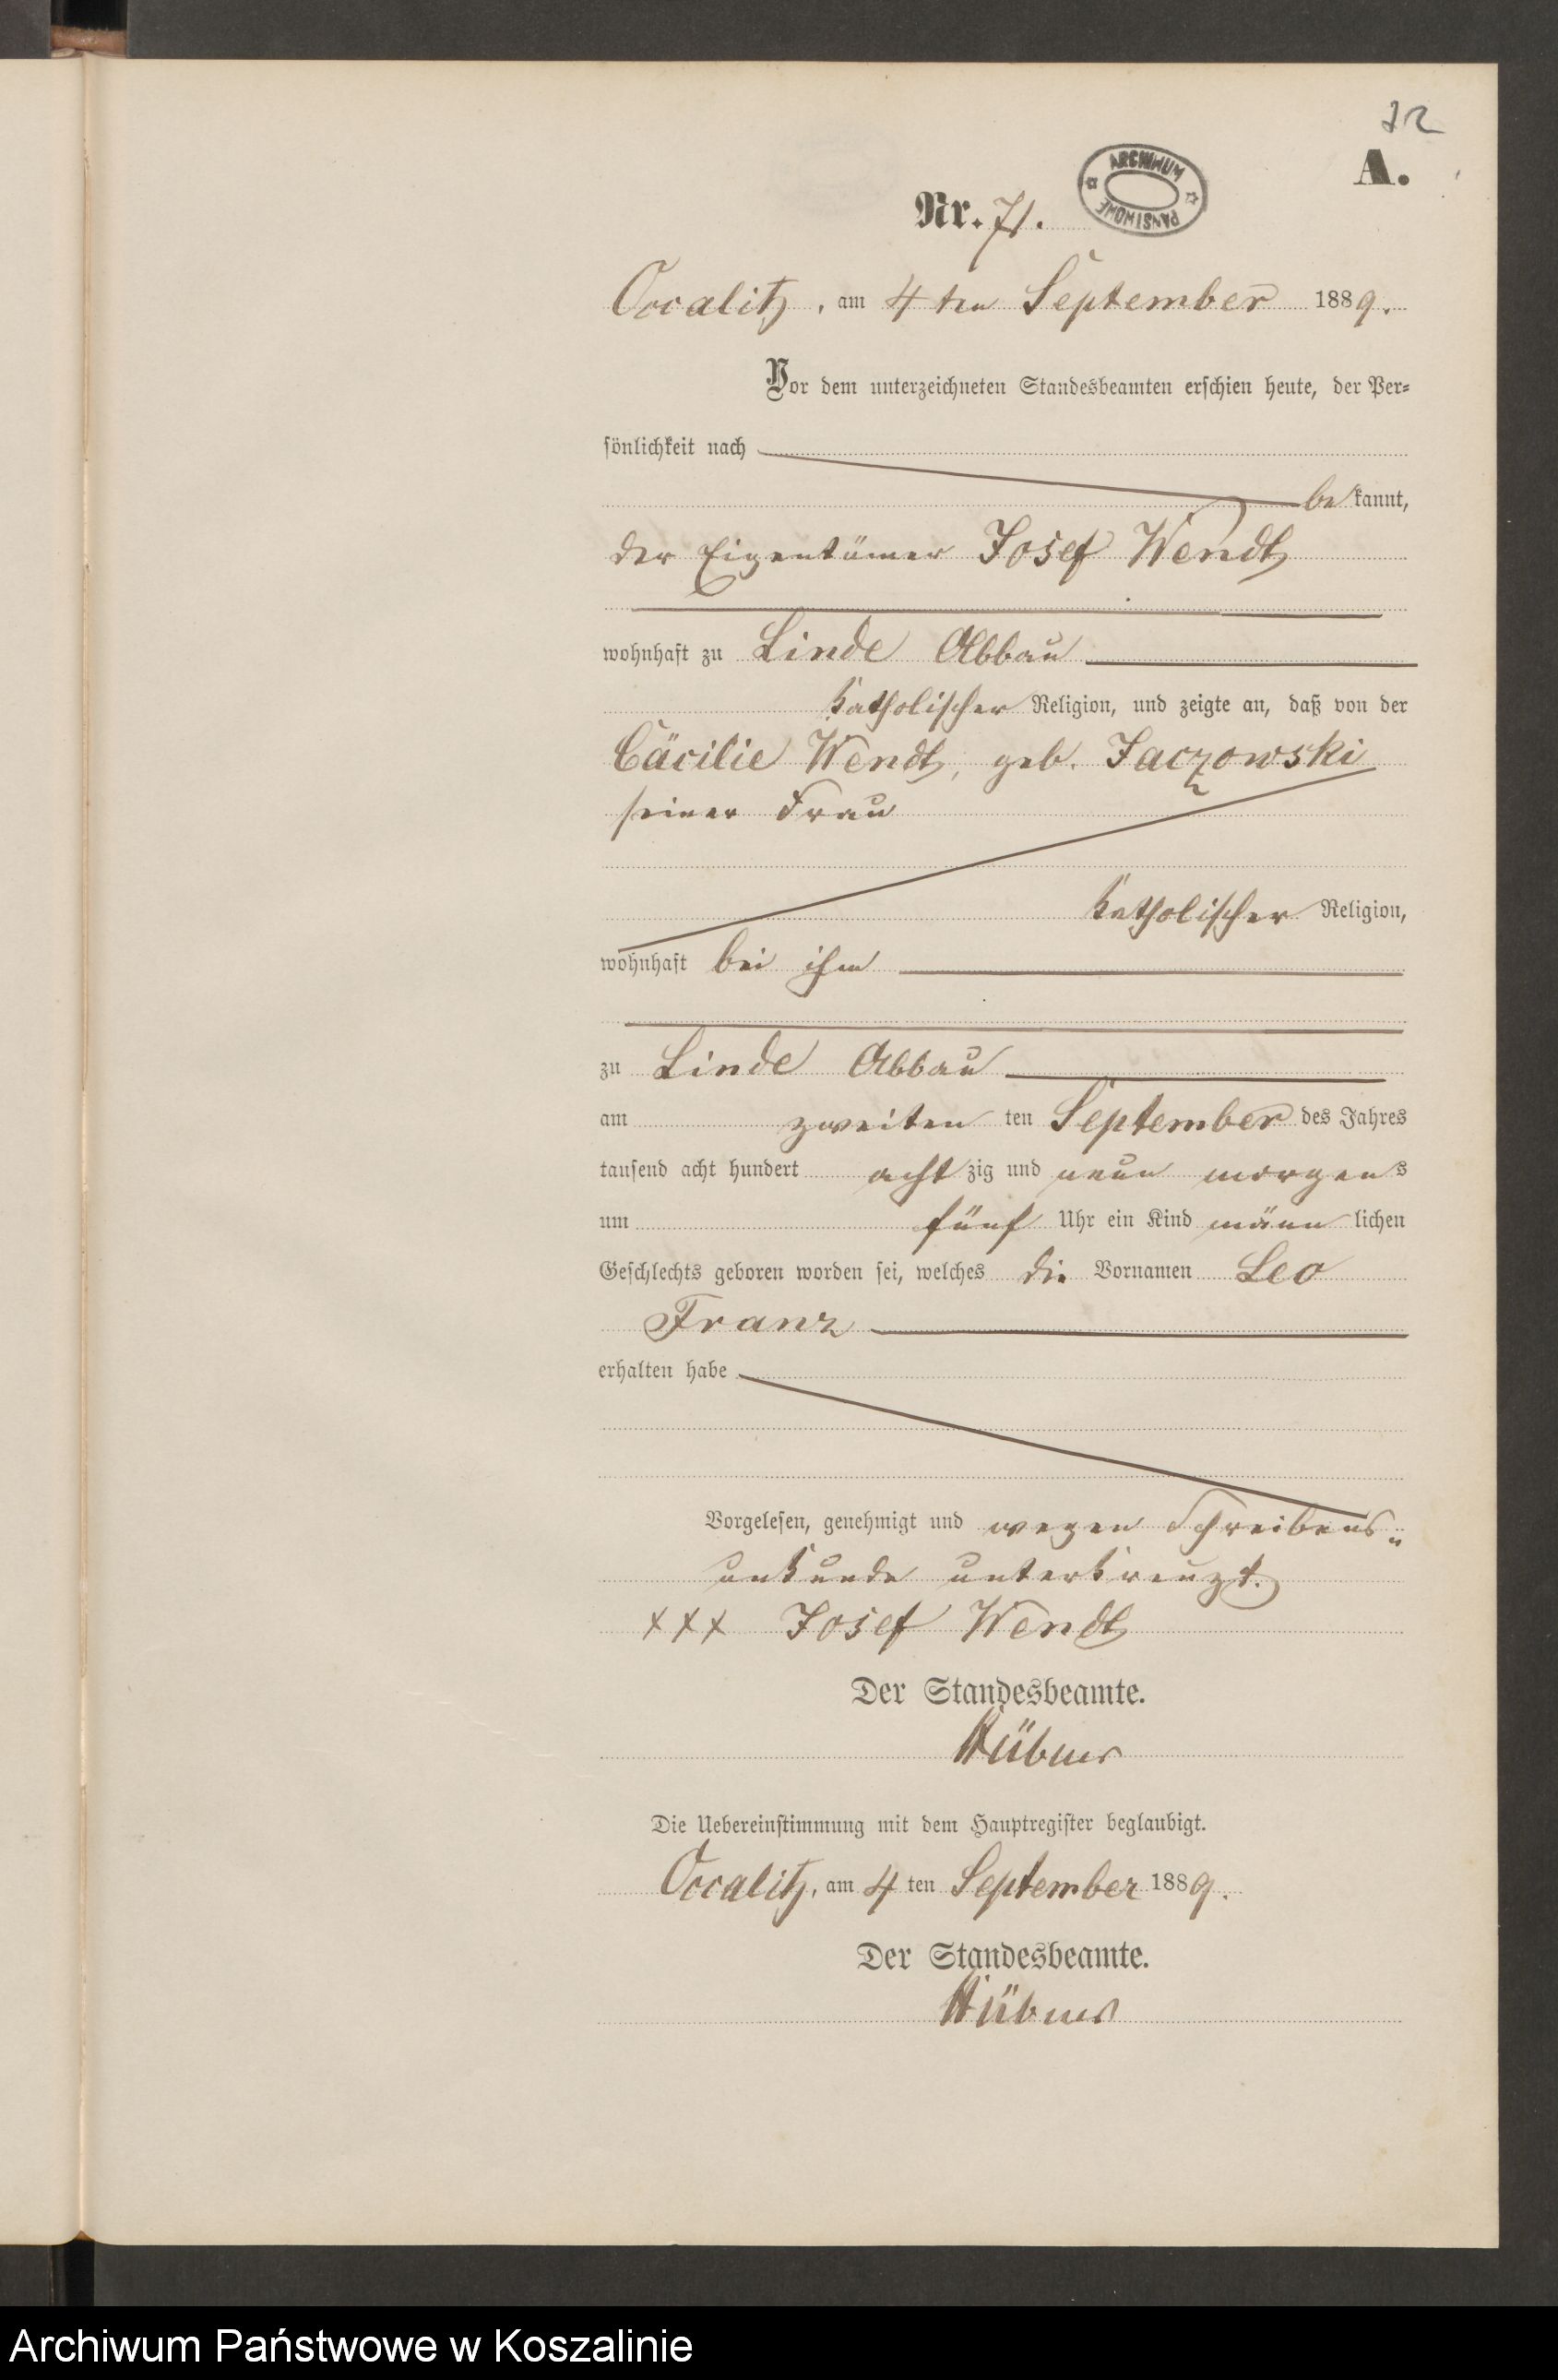 72
A.
Nr. 71.
ARCHIWUM PAŃSTWOWE
Occalitz, am 4ten September 1889.
Vor dem unterzeichneten Standesbeamten erschien heute, der Per-
sönlichkeit nach
bekannt,
der Eigentümer Josef Wendt
wohnhaft zu Linde Abbau
katholischer Religion, und zeigte an, daß von der
Cäcilie Wendt, geb. Jaczowski
seiner Frau
katholischer Religion,
wohnhaft bei ihm
zu Linde Abbau
am zweiten ten September des Jahres
tausend acht hundert achtzig und neun morgens
um fünf Uhr ein Kind männlichen
Geschlechts geboren worden sei, welches die Vornamen Leo
Franz
erhalten habe
Vorgelesen, genehmigt und wegen Schreibens-
unkunde unterkreuzt.
xxx Josef Wendt
Der Standesbeamte.
Hübner
Die Uebereinstimmung mit dem Hauptregister beglaubigt.
Occalitz, am 4 ten September 1889.
Der Standesbeamte.
Hübner
Archiwum Państwowe w Koszalinie